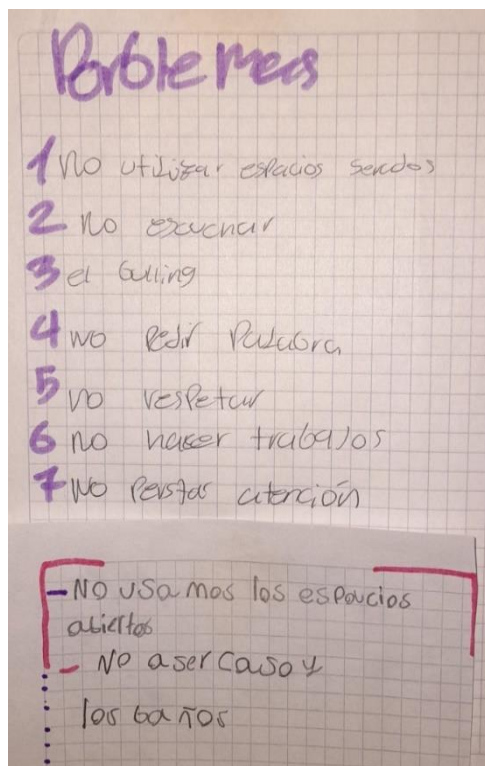 Porblemas
1 no utilizar espacios sendos
2 no escuchar
3 el bulling
4 no pedir Palabra
5 no respetar
6 no hacer trabajos
7 no perstar atención
- No usamos los espacios
abiertos
- No aser caso y
los baños